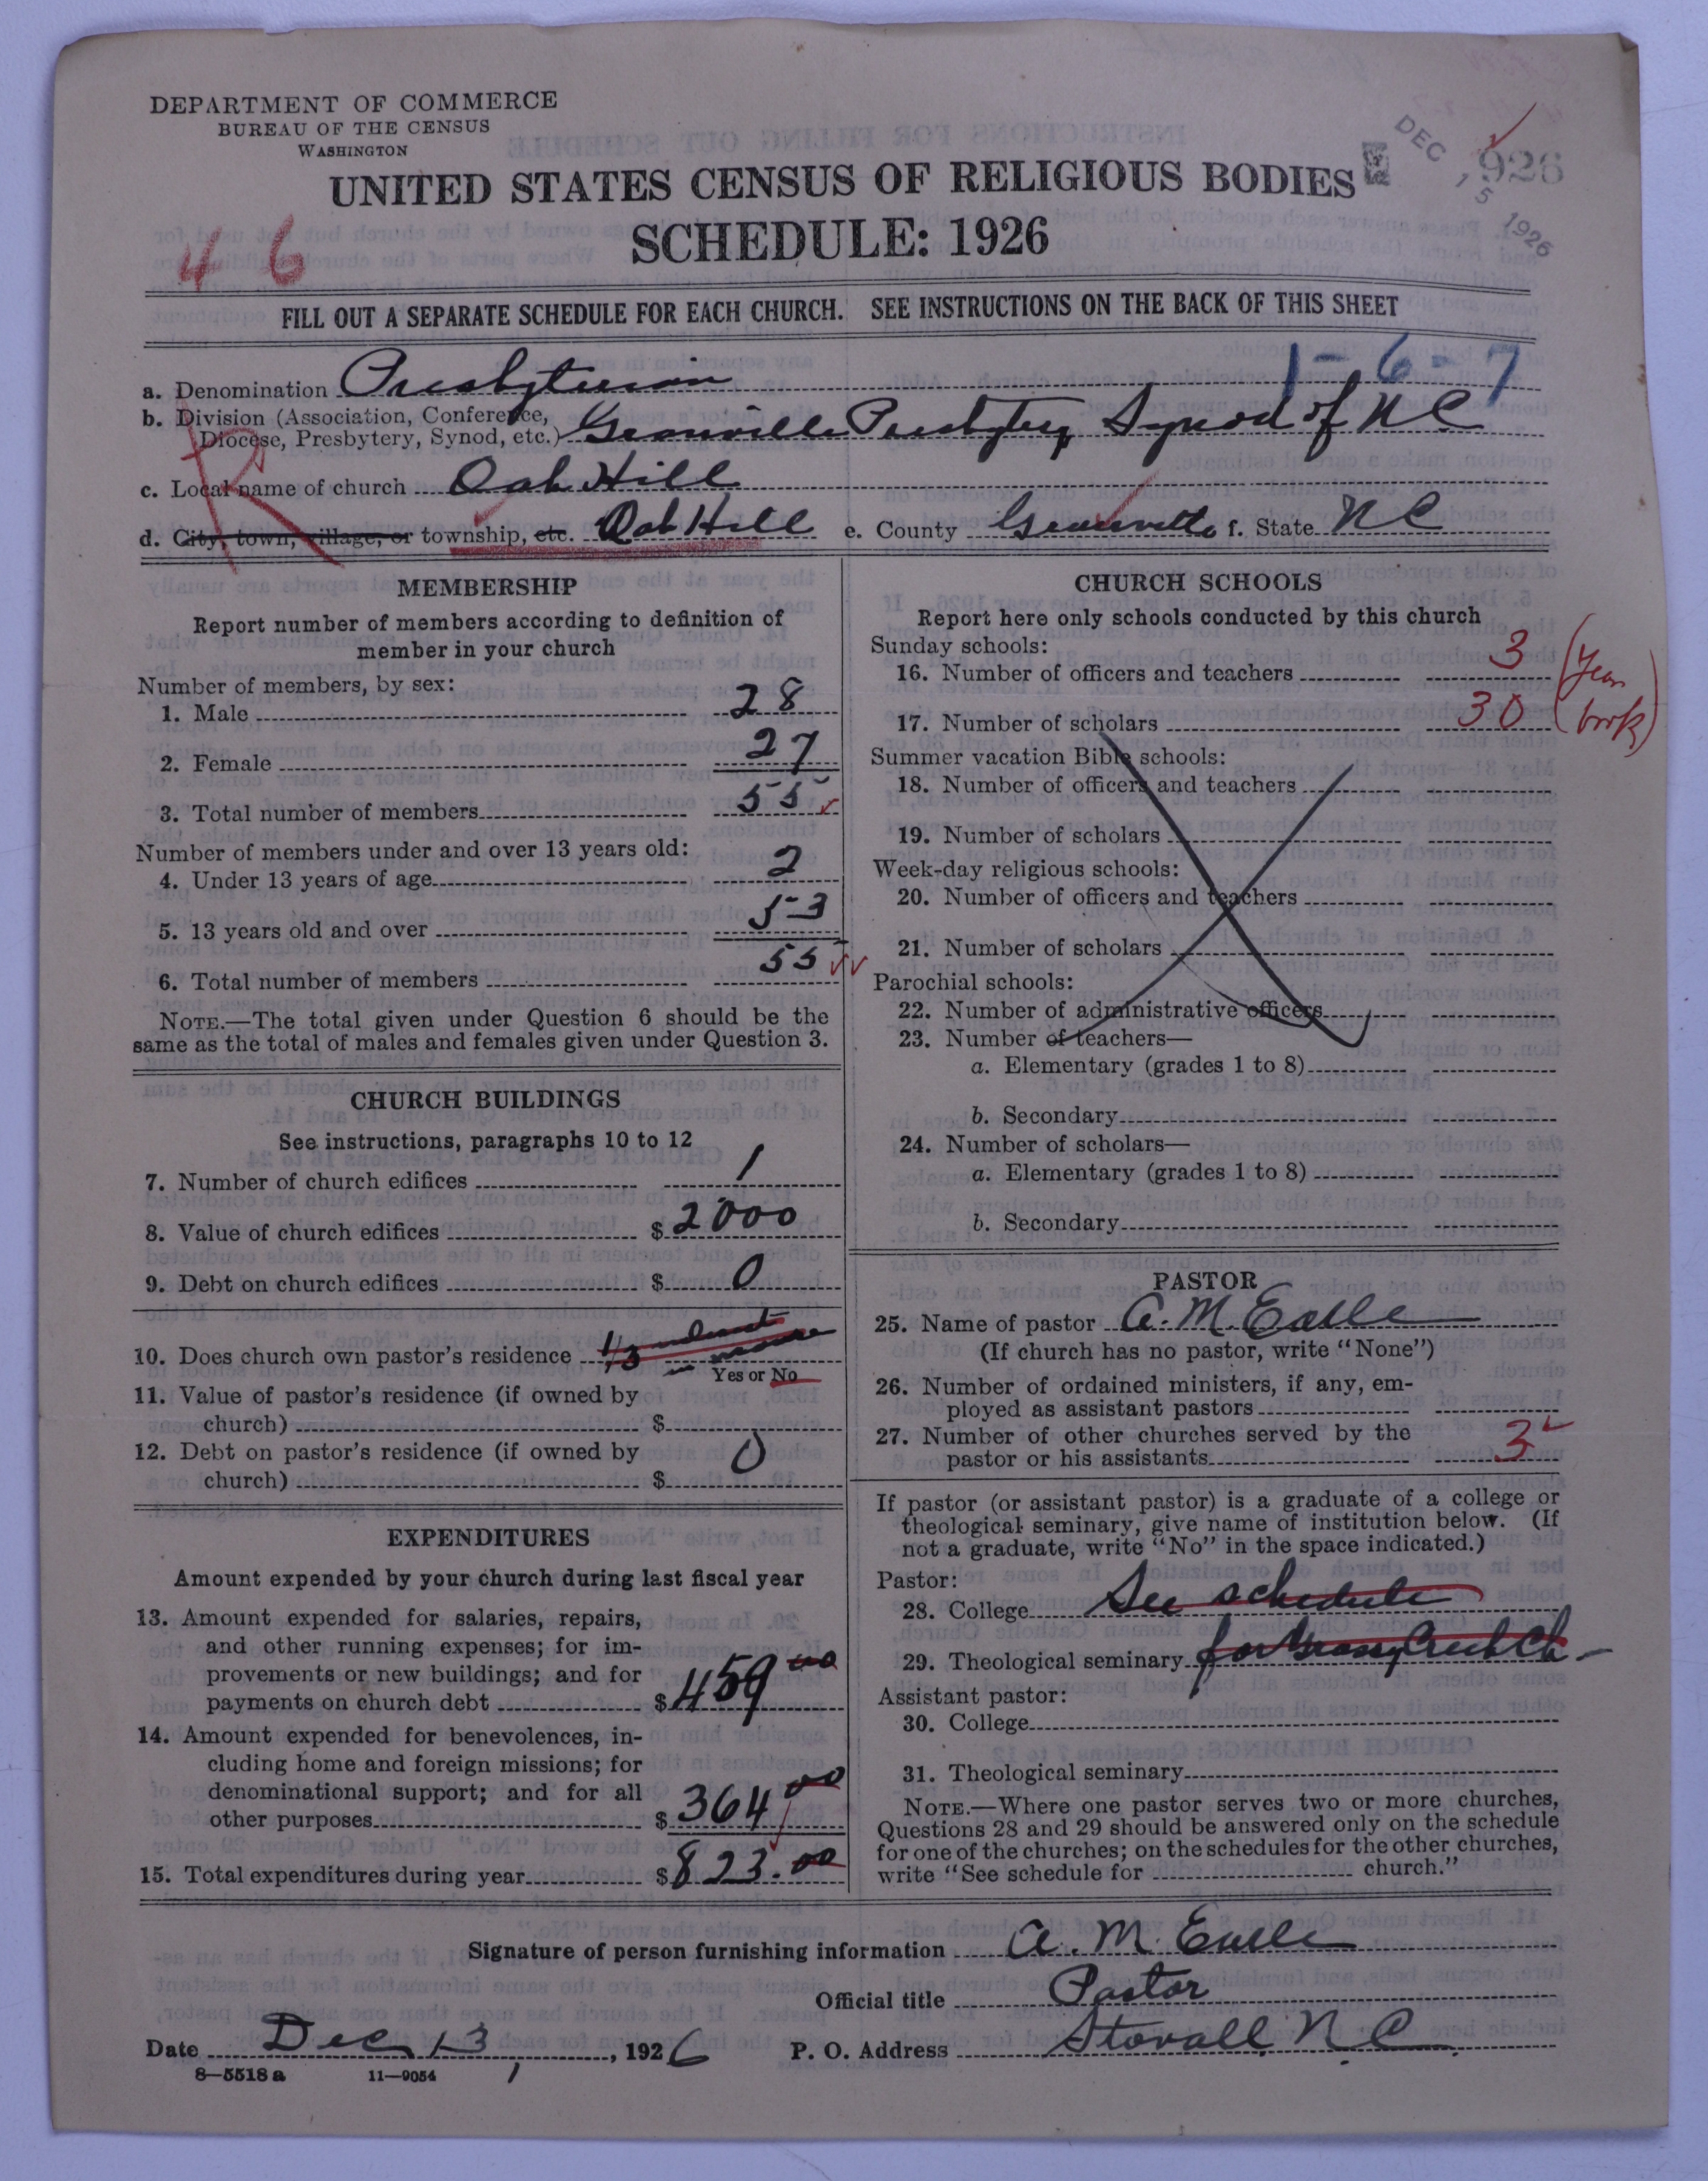 DEPARTMENT OF COMMERCE
BUREAU OF THE CENSUS
WASHINGTON
UNITED STATES CENSUS OF RELIGIOUS BODIES
SCHEDULE: 1926
DEC 15 1926
926
4 6
FILL OUT A SEPARATE SCHEDULE FOR EACH CHURCH. SEE INSTRUCTIONS ON THE BACK OF THIS SHEET
1-6-7
a. Denomination Presbyterian
b. Division (Association, Conference,
Diocese, Presbytery, Synod, etc.) Granville Presbytery Synod of N C
R
c. Local name of church Oak Hill
d. City, town, village, or township, etc. Oak Hill e. County Granville f. State N C
MEMBERSHIP
Report number of members according to definition of
member in your church
Number of members, by sex:
1. Male 28
2. Female 27
3. Total number of members 55
Number of members under and over 13 years old:
4. Under 13 years of age 2
5. 13 years old and over 53
6. Total number of members 55
NOTE.—The total given under Question 6 should be the
same as the total of males and females given under Question 3.
CHURCH BUILDINGS
See instructions, paragraphs 10 to 12
7. Number of church edifices 1
8. Value of church edifices $ 2000
9. Debt on church edifices $ 0
10. Does church own pastor's residence 1/3
Yes or No
11. Value of pastor's residence (if owned by
church) $
12. Debt on pastor's residence (if owned by
church) $ 0
EXPENDITURES
Amount expended by your church during last fiscal year
13. Amount expended for salaries, repairs,
and other running expenses; for im-
provements or new buildings; and for
payments on church debt $ 459 00
14. Amount expended for benevolences, in-
cluding home and foreign missions; for
denominational support; and for all
other purposes $ 364 00
15. Total expenditures during year $ 823.00
CHURCH SCHOOLS
Report here only schools conducted by this church
Sunday schools:
16. Number of officers and teachers 3 (Year
17. Number of scholars 30 book)
Summer vacation Bible schools:
18. Number of officers and teachers
19. Number of scholars
Week-day religious schools:
20. Number of officers and teachers
21. Number of scholars
Parochial schools:
22. Number of administrative officers
23. Number of teachers—
a. Elementary (grades 1 to 8)
b. Secondary
24. Number of scholars—
a. Elementary (grades 1 to 8)
b. Secondary
PASTOR
25. Name of pastor A. M. Earle
(If church has no pastor, write "None")
26. Number of ordained ministers, if any, em-
ployed as assistant pastors
27. Number of other churches served by the
pastor or his assistants 3
If pastor (or assistant pastor) is a graduate of a college or
theological seminary, give name of institution below. (If
not a graduate, write "No" in the space indicated.)
Pastor:
28. College See schedule
29. Theological seminary for Grassy Creek Ch
Assistant pastor:
30. College
31. Theological seminary
NOTE.—Where one pastor serves two or more churches,
Questions 28 and 29 should be answered only on the schedule
for one of the churches; on the schedules for the other churches,
write "See schedule for church."
Signature of person furnishing information A. M. Earle
Official title Pastor
Date Dec 13, 1926 P. O. Address Stovall N. C.
8—5518 a 11—9054